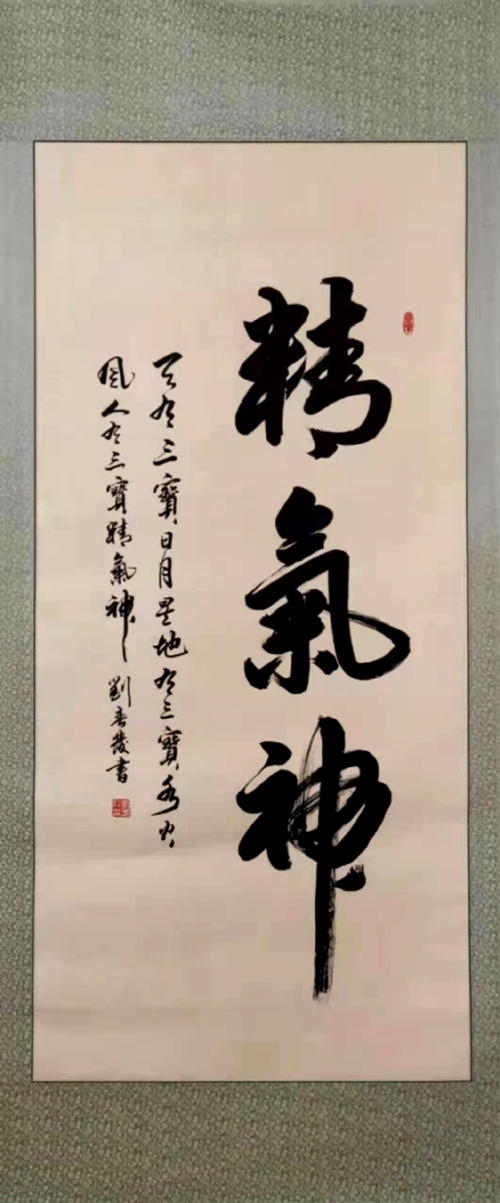 精氣神
天有三寶日月星地有三寶水火
風人有三寶精氣神
劉春發書